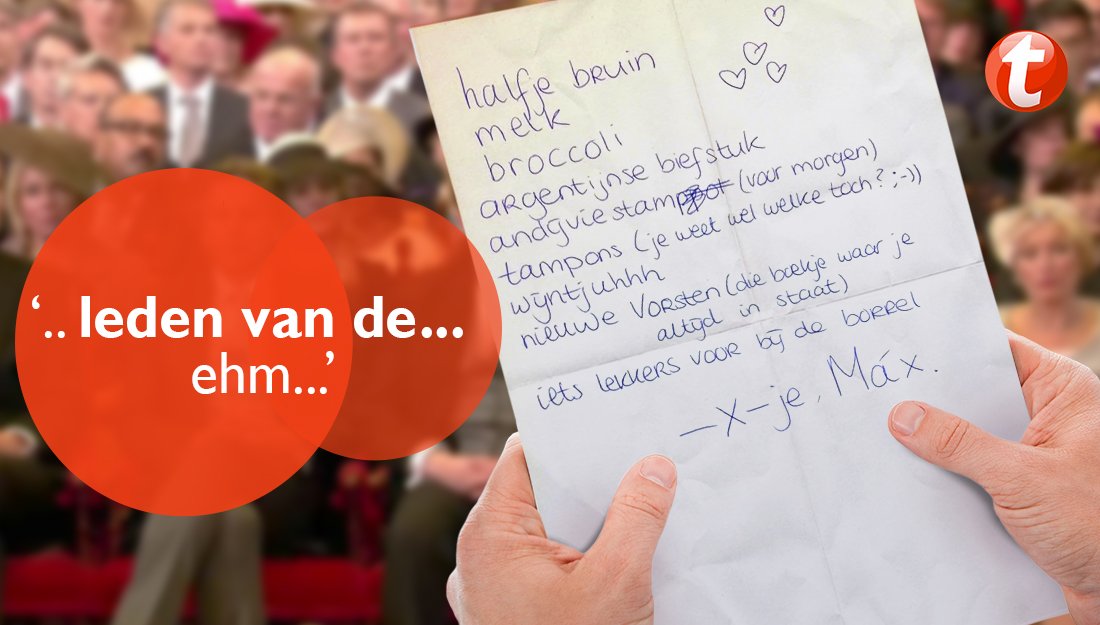 ‘.. leden van de...
ehm...’
halfje bruin
melk
broccoli
argentijnse biefstuk
andijvie stamppot (voor morgen)
tampons (je weet wel welke toch? ;-))
wijntjuhhh
nieuwe Vorsten (die boekje waar je
altijd in staat)
iets lekkers voor bij de borrel
—X—je, Máx.
t